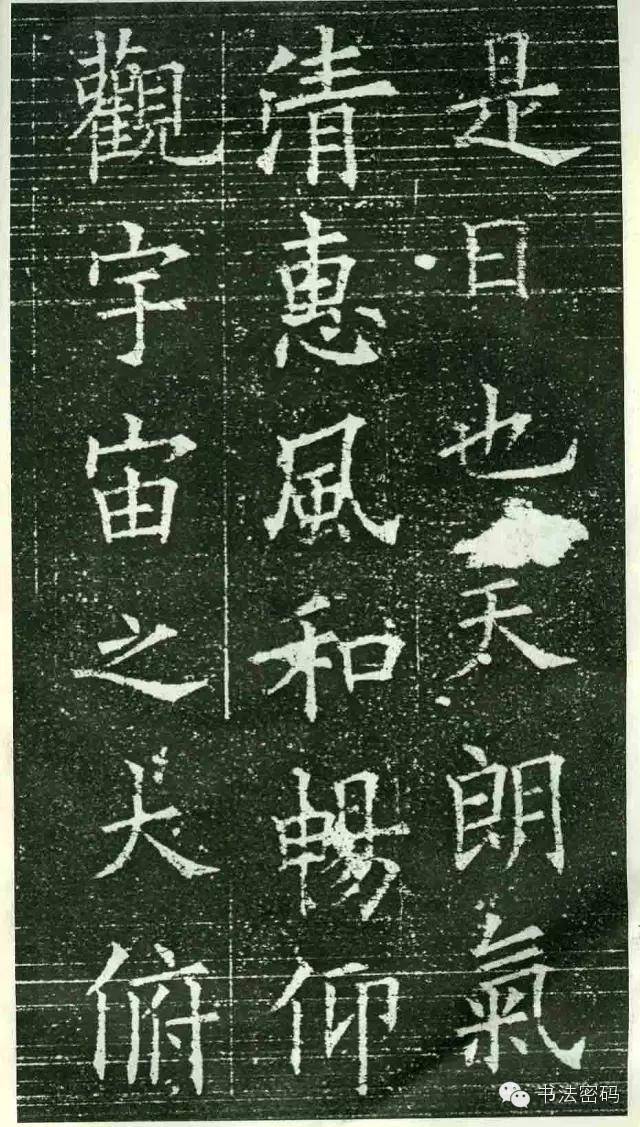 是日也天朗氣
清惠風和暢仰
觀宇宙之大俯
书法密码